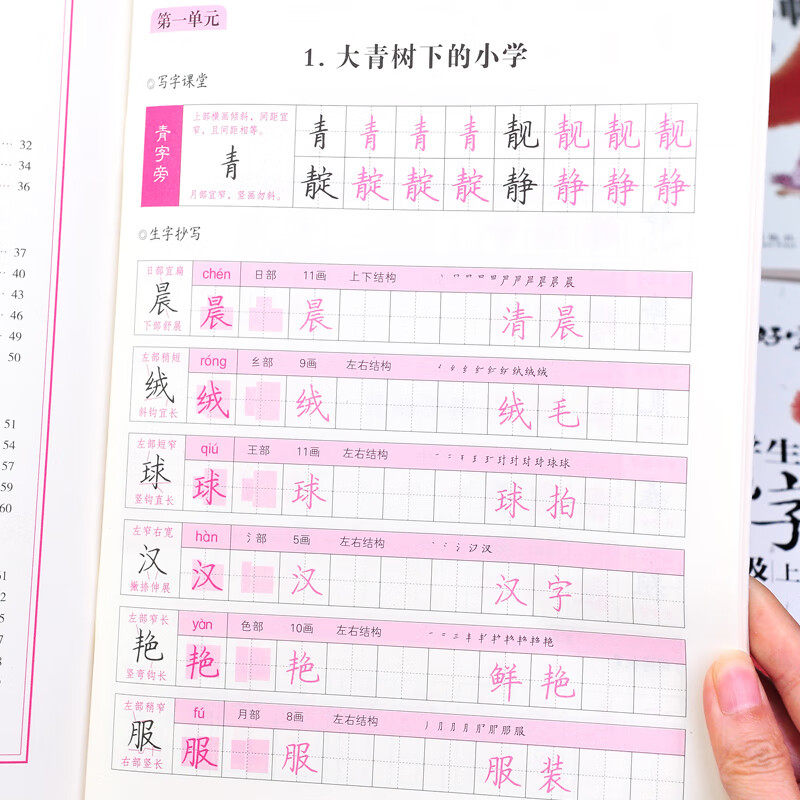 32
34
36
37
40
43
46
49
50
51
54
57
59
60
61
2
5
7
7
8
8
第一单元
1. 大青树下的小学
◎写字课堂
青字旁
上部横画倾斜，间距宜
窄，且间距相等。
青
月部宜窄，竖画勿斜。
青 青 青 青 靓 靓 靓 靓
靛 靛 靛 靛 静 静 静 静
◎生字抄写
日部宜扁
晨
下部舒展
chén 日部 11画 上下结构
晨 晨 清晨
左部稍短
绒
斜钩宜长
róng 纟部 9画 左右结构
绒 绒 绒毛
左部短窄
球
竖钩直长
qiú 王部 11画 左右结构
球 球 球拍
左窄右宽
汉
撇捺伸展
hàn 氵部 5画 左右结构
汉 汉 汉字
左部窄长
艳
竖弯钩长
yàn 色部 10画 左右结构
艳 艳 鲜艳
左部稍窄
服
右部竖长
fú 月部 8画 左右结构
服 服 服装
学生
字
级 上